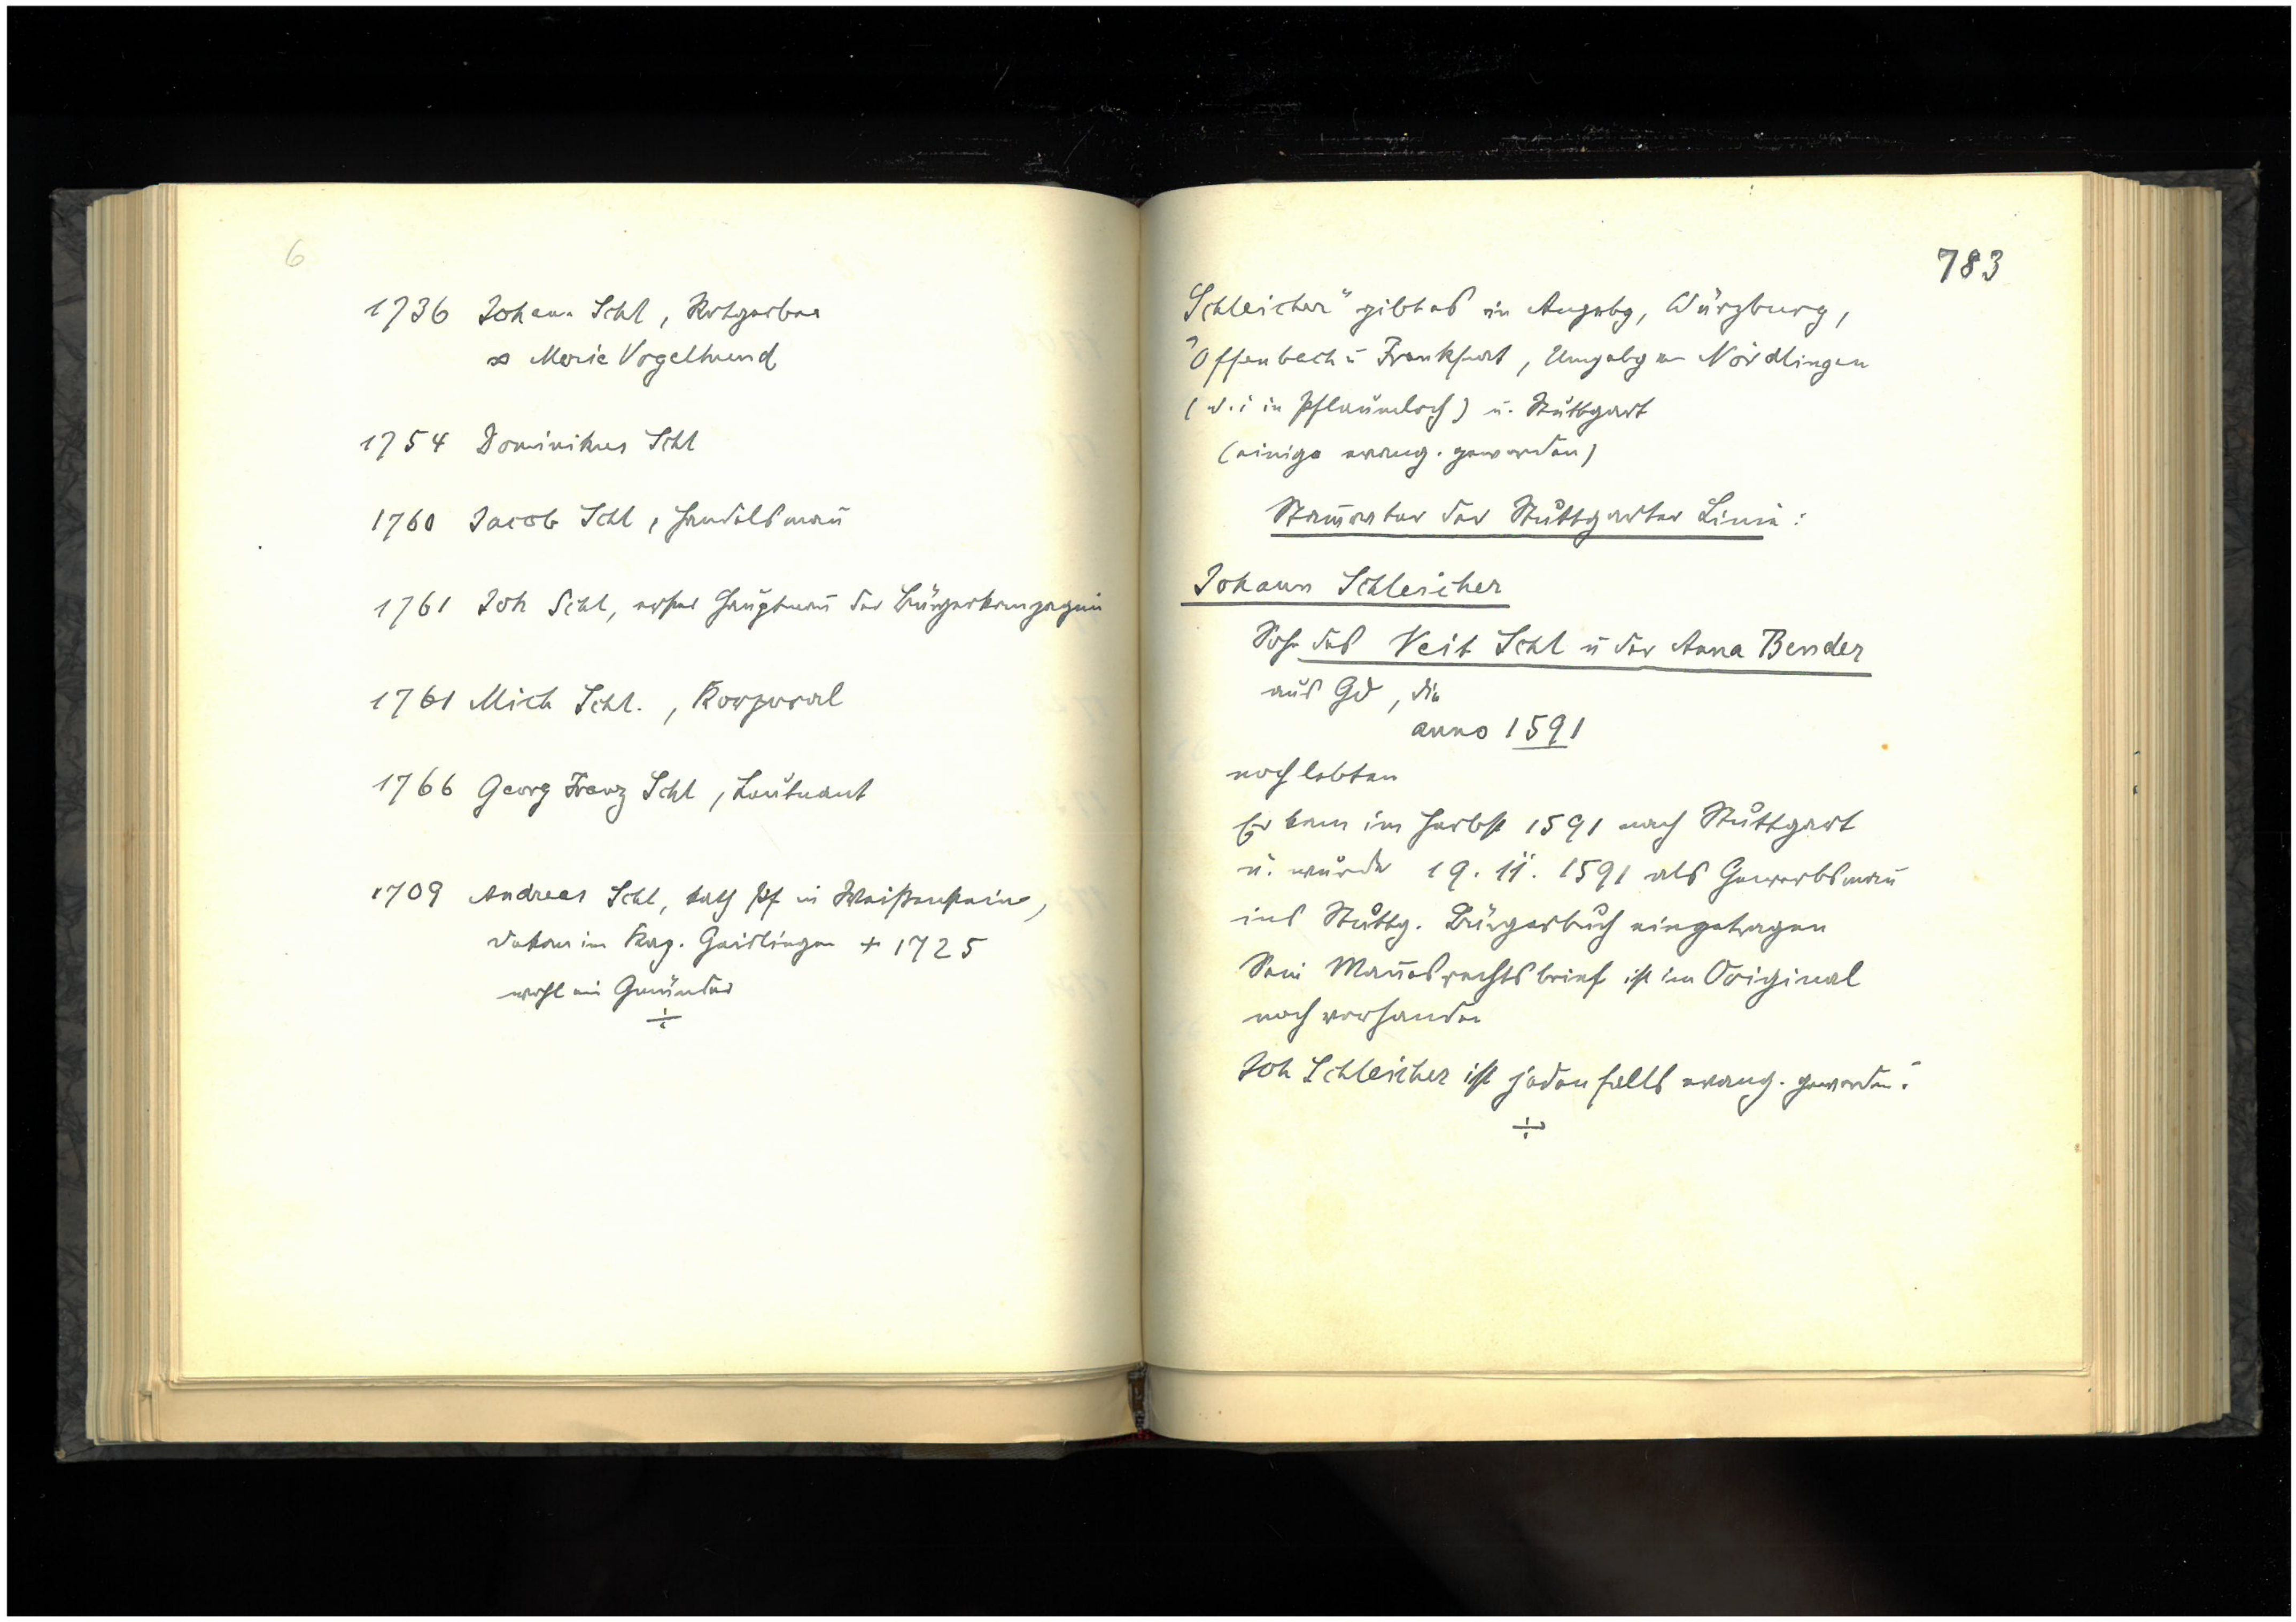 6
1736 Johann Schl, Rotgerber
∞ Marie Vogelhund
1754 Dominikus Schl
1760 Jacob Schl, Handelsmañ
1761 Joh Schl, erster Hauptmañ der Bürgerkompagnie
1761 Mich Schl., Korporal
1766 Georg Franz Schl, Leutnant
1709 Andreas Schl, kath Pf in Weißenstein,
Dekan im Kap. Geislingen + 1725
wohl ein Gmünder
÷
783
Schleicher" gibt es in Augsbg, Würzburg,
Offenbach u Frankfurt, Umgebg von Nördlingen
(d. i in Pflaumloch) u. Stuttgart
(einige evang. geworden)
Stam̄vater der Stuttgarter Linie:
Johann Schleicher
Sohn des Veit Schl u der Anna Bender
aus Gd, die
anno 1591
noch lebten
Er kam im Herbst 1591 nach Stuttgart
u. wurde 19. 11. 1591 als Gewerbsmañ
ins Stuttg. Bürgerbuch eingetragen
Sein Mañesrechtsbrief ist im Original
noch vorhanden
Joh Schleicher ist jedenfalls evang. geworden.
÷